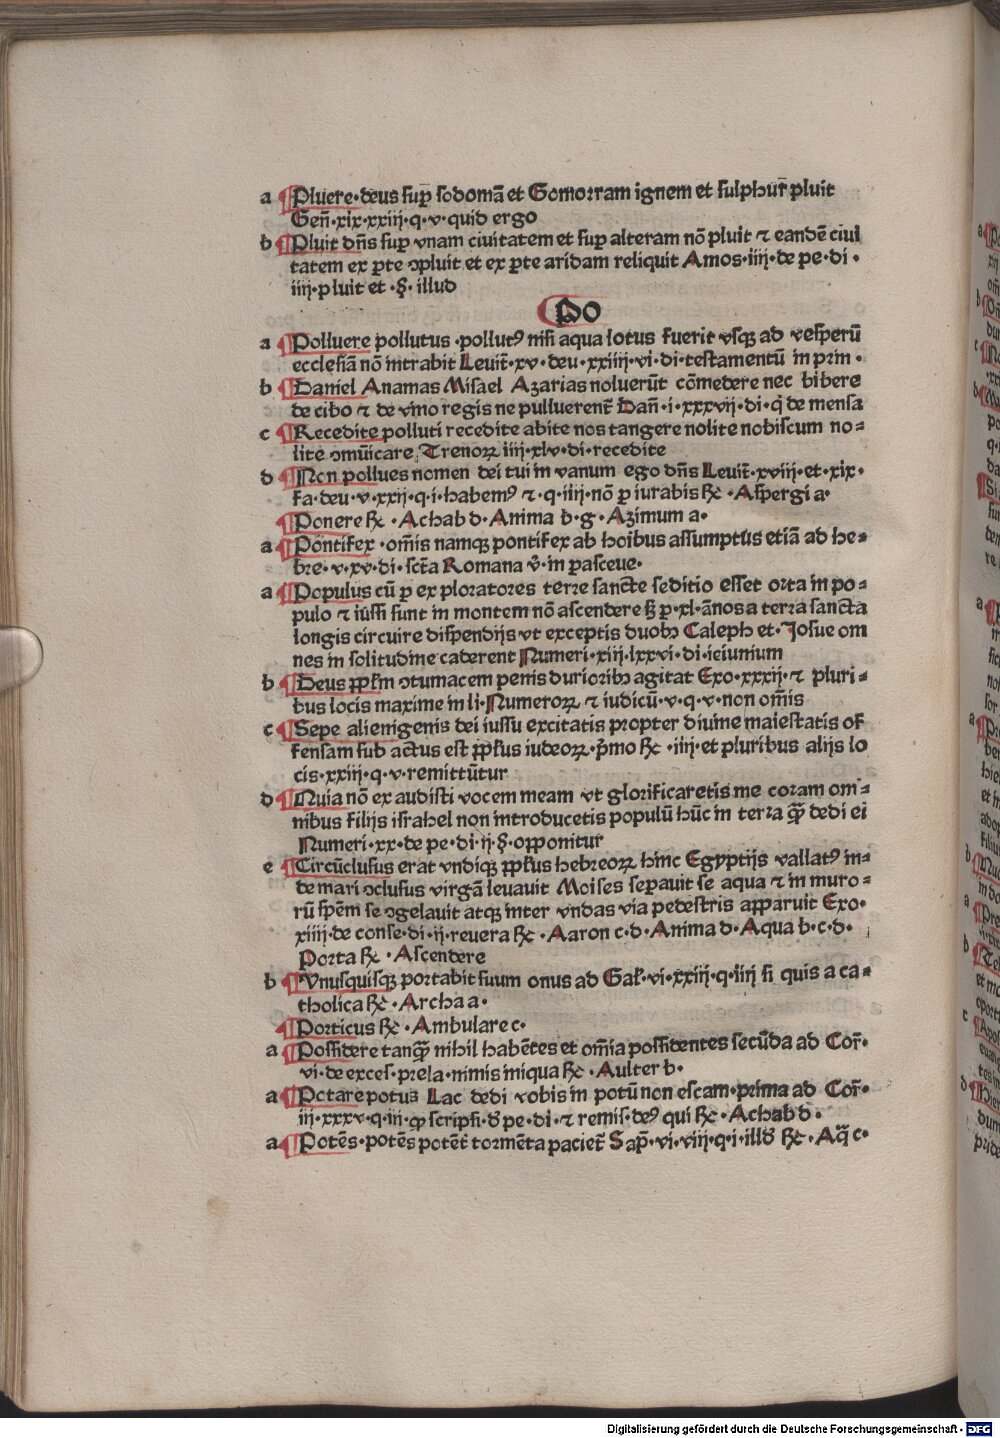 a ¶Pluere·deus sup̲ sodomā et Gomorram ignem et sulphur̄ pluit
Gen̄·xix·xxiij·q·v·quid ergo
b ¶Pluit dn̄s sup̲ vnam ciuitatem et sup̲ alteram nō pluit ⁊ eandē ciui
tatem ex p̲te ꝯpluit et ex p̲te aridam reliquit Amos·iiij·de pe·di·
iiij·pluit et·§·illud
Po
a ¶Polluere pollutus·pollutꝰ nisi aqua lotus fuerit vsqꝫ ad vesperū
ecclesiā nō intrabit Leuit̄·xv·deu·xxiiij·vi·di·testamentū in prin·
b ¶Daniel Ananias Misael Azarias noluerūt cōmedere nec bibere
de cibo ⁊ de vino regis ne pulluerent̄ Dan̄·i·xxxvij·di·q̄ de mensa
c ¶Recedite polluti recedite abite nos tangere nolite nobiscum no=
lite ꝯmūicare Trenoꝝ iiij·xlv·di·recedite
d ¶Non pollues nomen dei tui in vanum ego dn̄s Leuit̄·xviij·et·xix·
fa·deu·v·xxij·q·i·habemꝰ ⁊·q·iiij·nō p iurabis ꝶc·Aspergi a·
¶Ponere ꝶc·Achab d·Anima b·g·Azimum a·
a ¶Pontifex·om̄is namqꝫ pontifex ab hoībus assumptus etiā ad he=
bre·v·xv·di·sct̄a Romana v̄·in pasceue·
a ¶Populus cū p exploratores terre sancte seditio esset orta in po=
pulo ⁊ iussi sunt in montem nō ascendere sꝫ p·xl·ānos a terra sancta
longis circuire dispendijs vt exceptis duobꝫ Caleph et·Josue om
nes in solitudine caderent Numeri·xiij·lxxvi·di·ieiunium
b ¶Deus ppl̄m ꝯtumacem penis durioribꝫ agitat Exo·xxxij·⁊ pluri=
bus locis maxime in li·Numeroꝝ ⁊ iudicū·v·q·v·non om̄is
c ¶Sepe alienigenis dei iussu excitatis propter diuine maiestatis of
fensam sub actus est ppl̄us iudeoꝝ·p̄mo ꝶc·iiij·et pluribus alijs lo
cis·xxiij·q·v·remittūtur
d ¶Nuia nō ex audisti vocem meam vt glorificaretis me coram om=
nibus filijs israhel non introducetis populū hūc in terra quā dedi ei
Numeri·xx·de pe·di·ij·§·opponitur
e ¶Circūclusus erat vndiqꝫ ppl̄us hebreoꝝ hinc Egyptijs vallatꝰ in=
de mari ꝯclusus virgā leuauit Moises sepauit se aqua ⁊ in muro=
rū spēm se ꝯgelauit atqꝫ inter vndas via pedestris apparuit Exo·
xiiij·de conse·di·ij·reuera ꝶc·Aaron c·d·Anima d·Aqua b·c·d·
Porta ꝶc·Ascendere
b ¶Vnusquisqꝫ portabit suum onus ad Gal̄·vi·xxiij·q·iiij si quis a ca=
tholica ꝶc·Archa a·
¶Porticus ꝶc·Ambulare c·
a ¶Possidere tanquā nihil habētes et om̄ia possidentes secūda ad Cor̄·
vi·de exces·prela·nimis iniqua ꝶc·Aulter b·
a ¶Potare potus Lac dedi vobis in potū non escam·prima ad Cor̄·
iij·xxxv·q·iij·ꝙ scripsi·d̄ pe·di·⁊ remis·deꝰ qui ꝶc·Achab d·
a ¶Potēs·potēs potēt̄ tormēta paciet̄ Sap̄·vi·viij·q·i·illd̄ ꝶc·Aq̄ c·
Digitalisierung gefördert durch die Deutsche Forschungsgemeinschaft - DFG